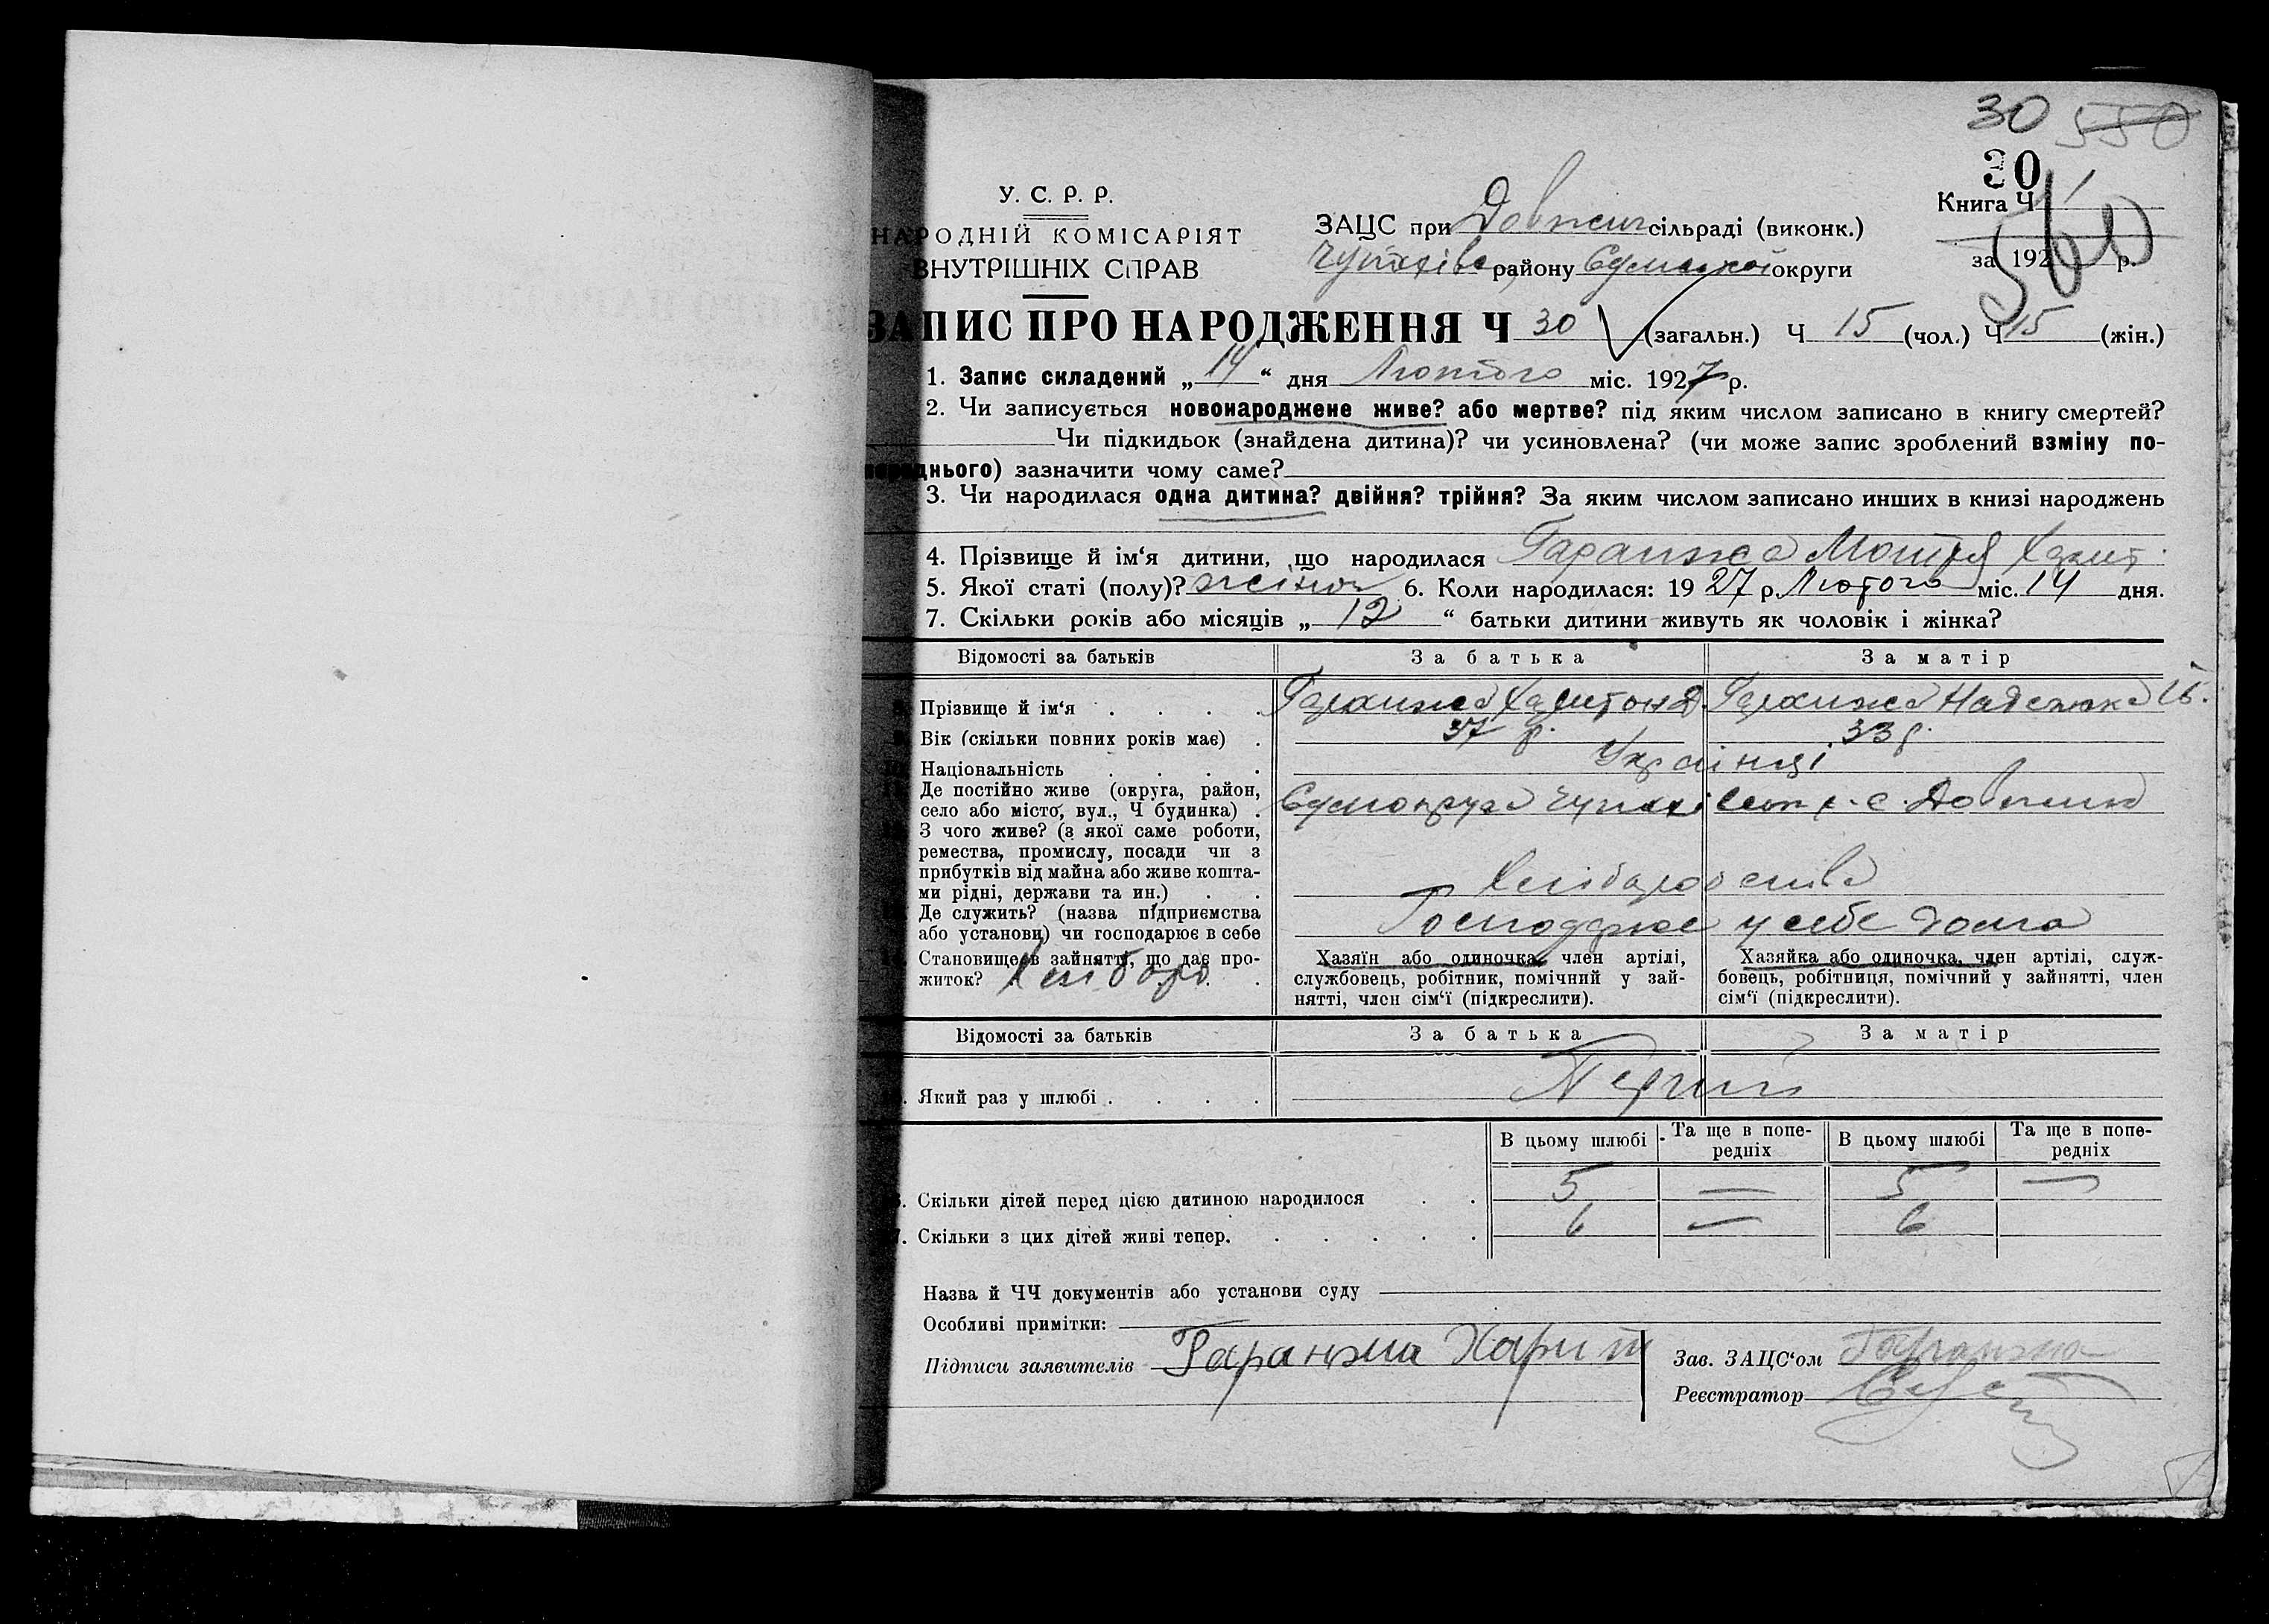 30 550
30
У. С. Р. Р.
НАРОДНІЙ КОМІСАРІЯТ
ВНУТРІШНІХ СПРАВ
ЗАЦС при Довжич сільраді (виконк.)
Чупахівс району Сумської округи
Книга Ч 1
за 192 р.
560
ЗАПИС ПРО НАРОДЖЕННЯ Ч 30 (загальн.) Ч 15 (чол.) Ч 15 (жін.)
1. Запис складений „ 14 “ дня Лютого міс. 1927 р.
2. Чи записується новонароджене живе? або мертве? під яким числом записано в книгу смертей?
Чи підкидьок (знайдена дитина)? чи усиновлена? (чи може запис зроблений взміну по-
переднього) зазначити чому саме?
3. Чи народилася одна дитина? двійня? трійня? За яким числом записано инших в книзі народжень
4. Прізвище й ім‘я дитини, що народилася Гаранжа Мотря Харит
5. Якої статі (полу)? жіноч 6. Коли народилася: 1927 р. Лютого міс. 14 дня.
7. Скільки років або місяців „ 12 “ батьки дитини живуть як чоловік і жінка?
Відомості за батьків За батька За матір
Прізвище й ім‘я Гаранжа Харитон Д. Гаранжа Надежжа Ів.
Вік (скільки повних років має) 37 р. 33 р.
Національність Українці
Де постійно живе (округа, район,
село або місто, вул., Ч будинка) Сумокруга Чупахівськ р. с. Довжик
З чого живе? (з якої саме роботи,
ремества, промислу, посади чи з
прибутків від майна або живе кошта-
ми рідні, держави та ин.) Хліборобства
Де служить? (назва підприємства
або установи) чи господарює в себе Господарює у себе дома
Становище в зайнятті, що дає про-
житок? Хлібороб
Хазяїн або одиночка, член артілі,
службовець, робітник, помічний у зай-
нятті, член сім‘ї (підкреслити).
Хазяйка або одиночка, член артілі, служ-
бовець, робітниця, помічний у зайнятті, член
сім‘ї (підкреслити).
Відомості за батьків За батька За матір
Який раз у шлюбі Перший
В цьому шлюбі Та ще в попе-
редніх В цьому шлюбі Та ще в попе-
редніх
Скільки дітей перед цією дитиною народилося 5 — 5 —
7. Скільки з цих дітей живі тепер. 6 — 6
Назва й ЧЧ документів або установи суду
Особливі примітки:
Підписи заявителів Гаранжа Харит
Зав. ЗАЦС‘ом Гаранжа
Реєстратор